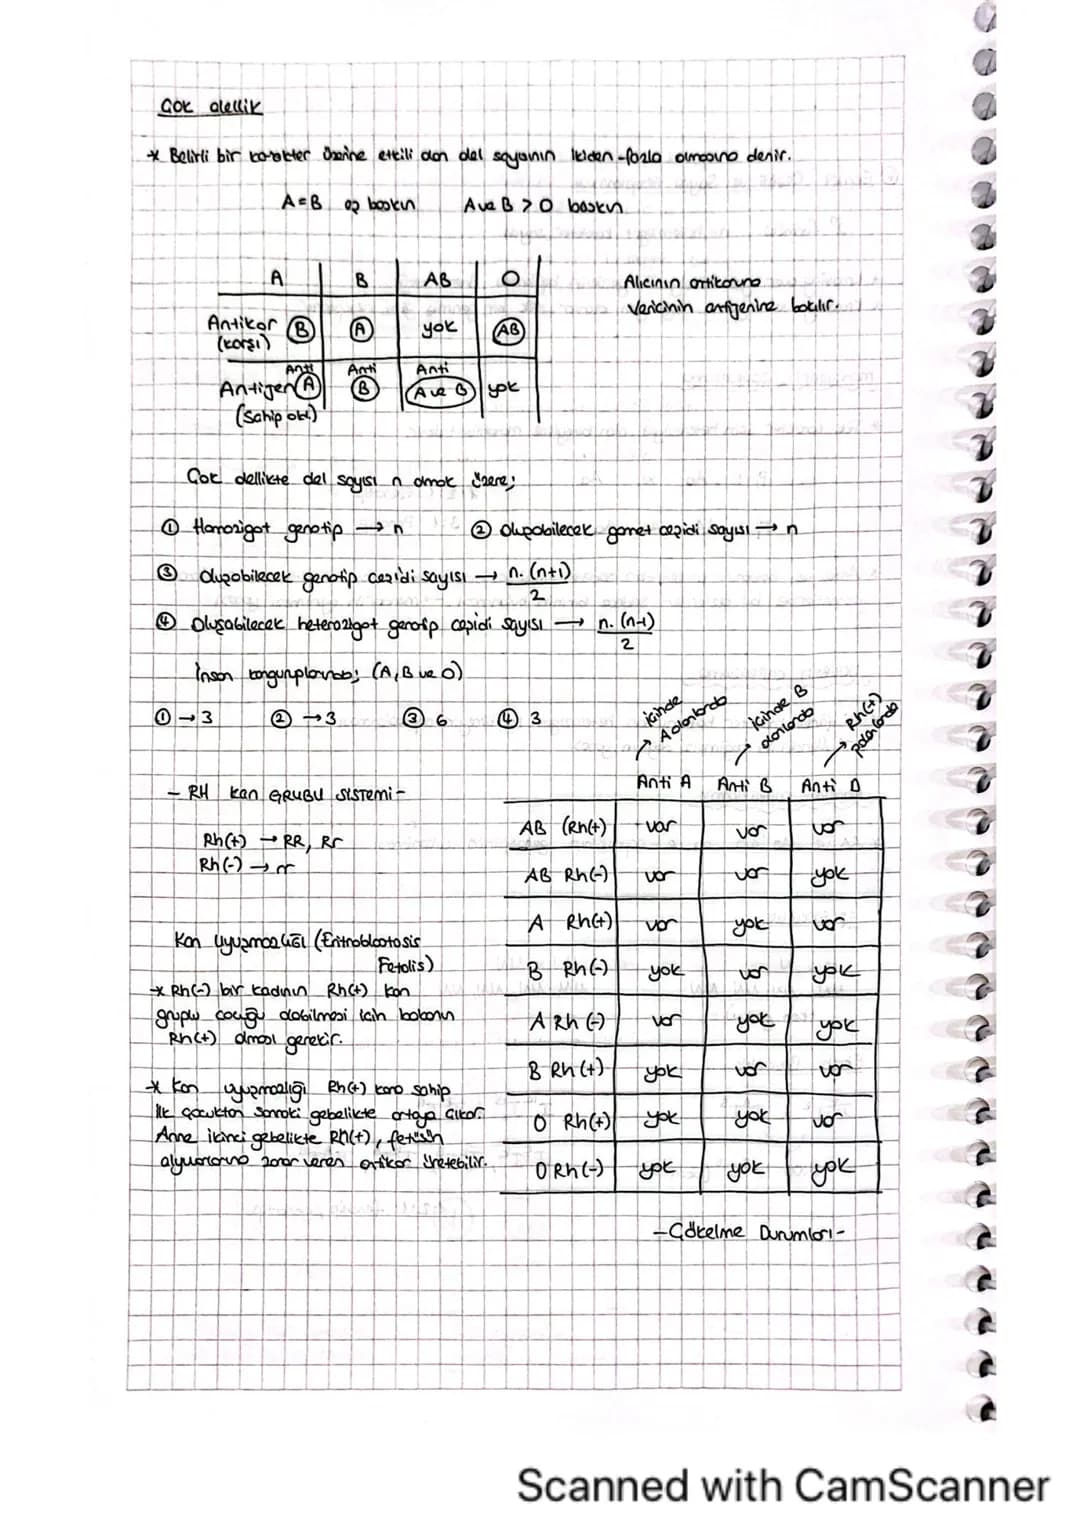 Çok alellik
* Belirli bir karakter üzerine etkili olan alel sayısının ikiden fazla olmasına denir.
A=B eş baskın    A ve B > 0 baskın
A    B    AB    O
Antikor (karşı)    B    A    yok    AB
Antijen (Sahip old.)    Anti A    Anti B    Anti A ve B    yok
Alıcının antikoruna
Vericinin antijenine bakılır.
Çok alellikte alel sayısı n olmak üzere;
① Homozigot genotip → n    ② Oluşabilecek gamet çeşidi sayısı → n
③ Oluşabilecek genotip çeşidi sayısı → n.(n+1)/2
④ Oluşabilecek heterozigot genotip çeşidi sayısı → n.(n-1)/2
İnsan kangruplarında; (A, B ve O)
① → 3    ② → 3    ③ 6    ④ 3
- RH Kan GRUBU SİSTEMİ -
Rh(+) → RR, Rr
Rh(-) → rr
Kan Uyuşmazlığı (Eritroblastosis
Fetalis)
* Rh(-) bir kadının Rh(+) kan
gruplu çocuğu olabilmesi için babanın
Rh(+) olması gerekir.
* Kan uyuşmazlığı Rh(+) kana sahip
ilk çocuktan sonraki gebelikte ortaya çıkar.
Anne ikinci gebelikte Rh(+), fetüsün
alyuvarlarına zarar veren antikor üretebilir.
içinde A olanlarda    içinde B olanlarda    Rh(+) olanlarda
Anti A    Anti B    Anti D
AB (Rh(+)    var    var    var
AB Rh(-)    var    var    yok
A Rh(+)    var    yok    var
B Rh(-)    yok    var    yok
A Rh(-)    var    yok    yok
B Rh(+)    yok    var    var
O Rh(+)    yok    yok    var
O Rh(-)    yok    yok    yok
-Çökelme Durumları-
Scanned with CamScanner